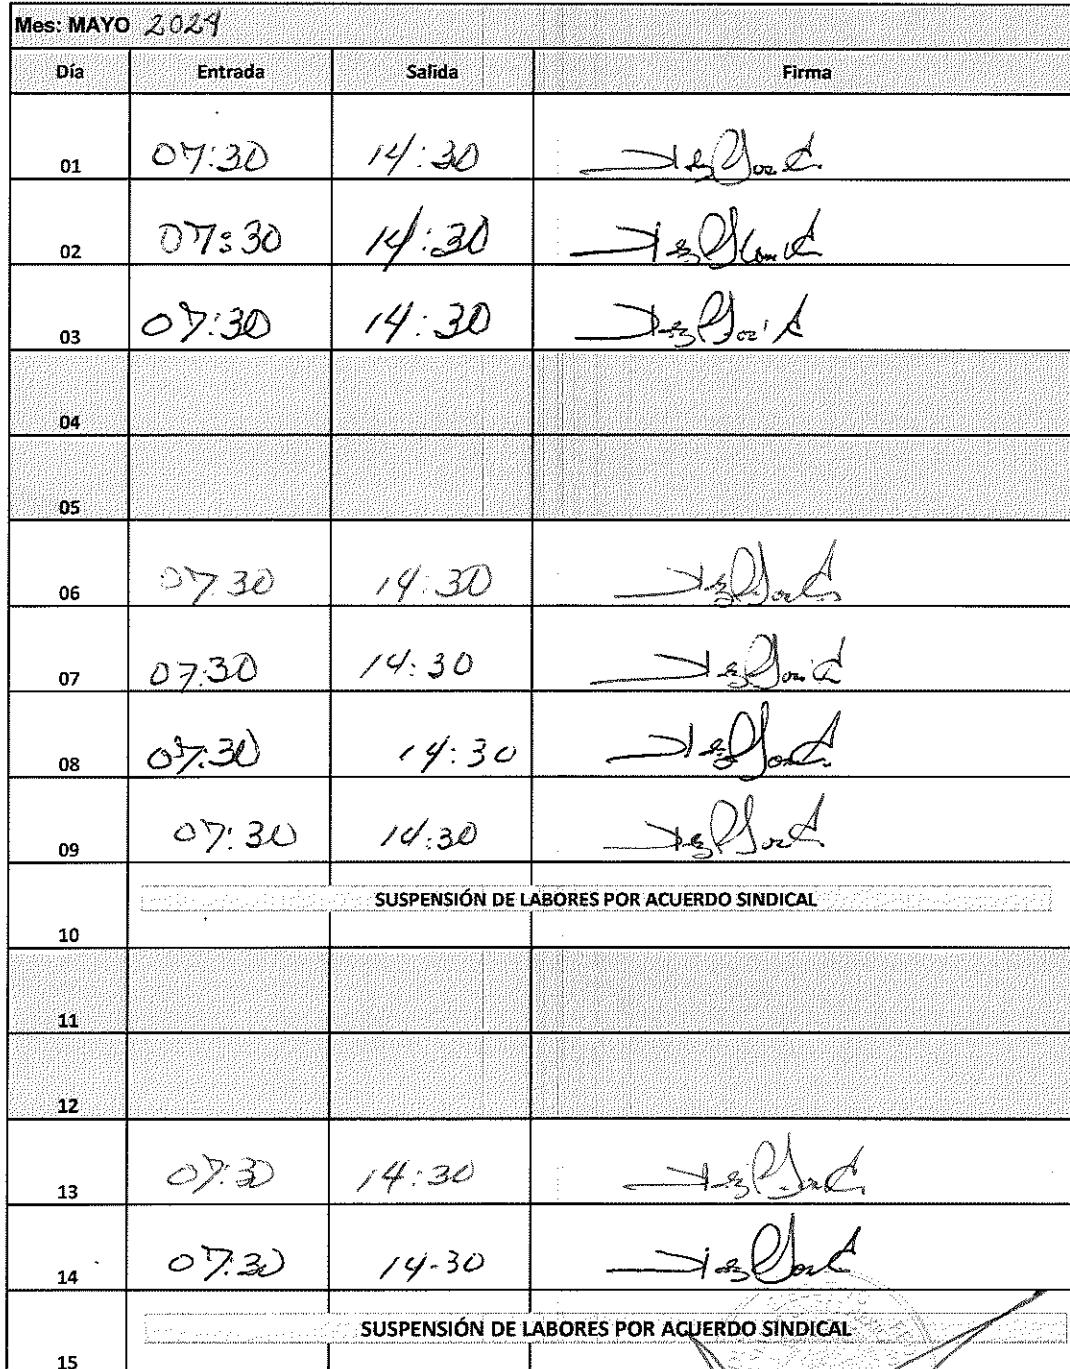 Mes: MAYO 2024
Día Entrada Salida Firma
01 07:30 14:30
02 07:30 14:30
03 07:30 14:30
04
05
06 07:30 14:30
07 07:30 14:30
08 07:30 14:30
09 07:30 14:30
SUSPENSIÓN DE LABORES POR ACUERDO SINDICAL
10
11
12
13 07:30 14:30
14 07:30 14-30
SUSPENSIÓN DE LABORES POR ACUERDO SINDICAL
15